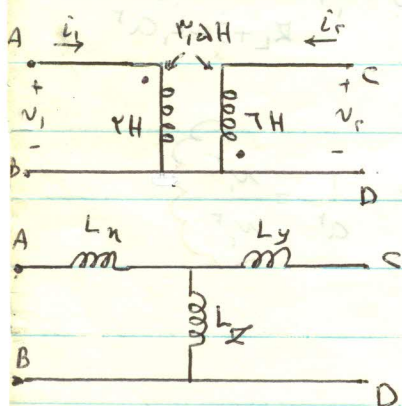 A i₁ ۳,۵H i۲ C
+ +
v₁ ۳H ۶H v۲
- -
B D
A Lx Ly C
Lz
B D